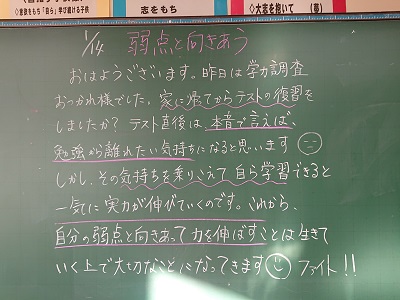 志をもち
◇大志を抱いて (春)
1/14 弱点と向きあう
おはようございます。昨日は学力調査
おつかれ様でした。家に帰てからテストの復習を
しましたか？テスト直後は本音で言えば、
勉強から離れたい気持ちになると思います
しかし、その気持ちを乗りこえて自ら学習できると
一気に実力が伸びていくのです。これから、
自分の弱点と向きあって力を伸ばすことは生きて
いく上で大切なことになってきます ファイト!!